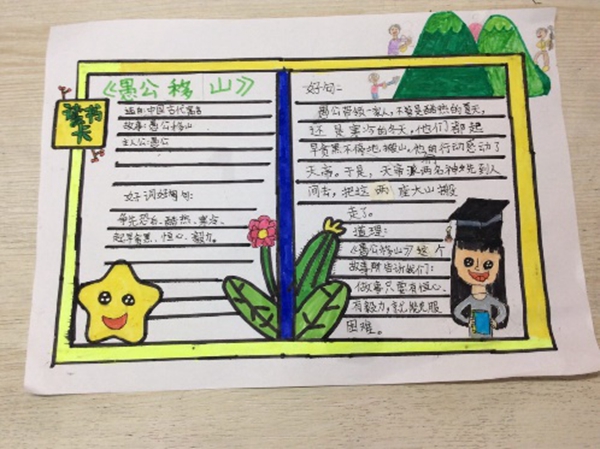 读书
卡
《愚公移山》
选自:中国古代寓言
故事:愚公移山
主人公:愚公
好词好句:
争先恐后、酷热、寒冷、
起早贪黑、恒心、毅力。
好句:
愚公带领一家人,不管是酷热的夏天,
还是寒冷的冬天,他们都起
早贪黑不停地搬山。他的行动感动了
天帝。于是,天帝派两名神仙到人
间去,把这两座大山搬
走了。
道理:
《愚公移山》这个
故事告诉我们:
做事只要有恒心、
有毅力,就能克服
困难。